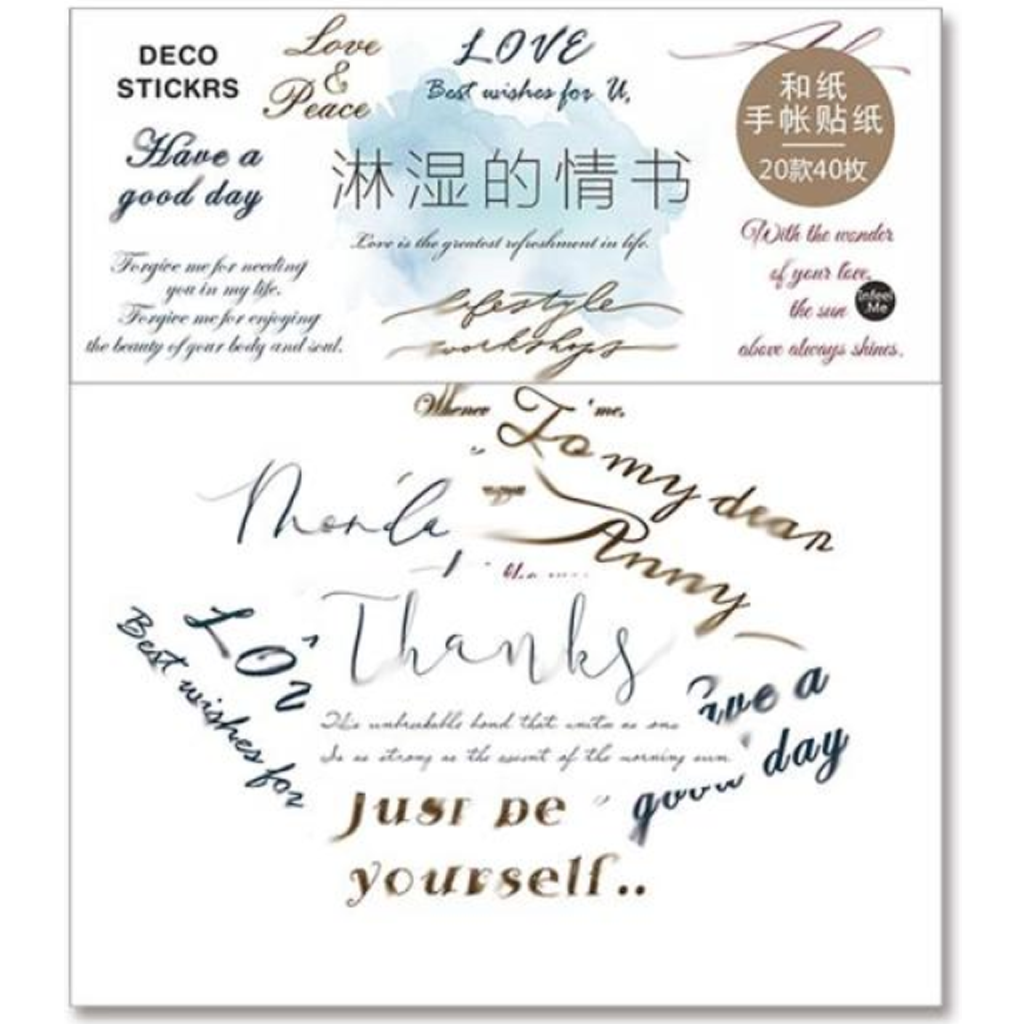 DECO
STICKRS
Love
&
Peace
LOVE
Best wishes for U,
和纸
手帐贴纸
20款40枚
Have a
good day
淋湿的情书
Love is the greatest refreshment in life.
Forgive me for needing
you in my life.
Forgive me for enjoying
the beauty of your body and soul.
lifestyle
workshops
With the wonder
of your love,
the sun
above always shines.
infeel
.Me
me,
To my dear
Anny
Thanks
Best wishes for
good day
Its unbreakable bond that
as one
Is as strong as the
of the morning sun
Just be
yourself..